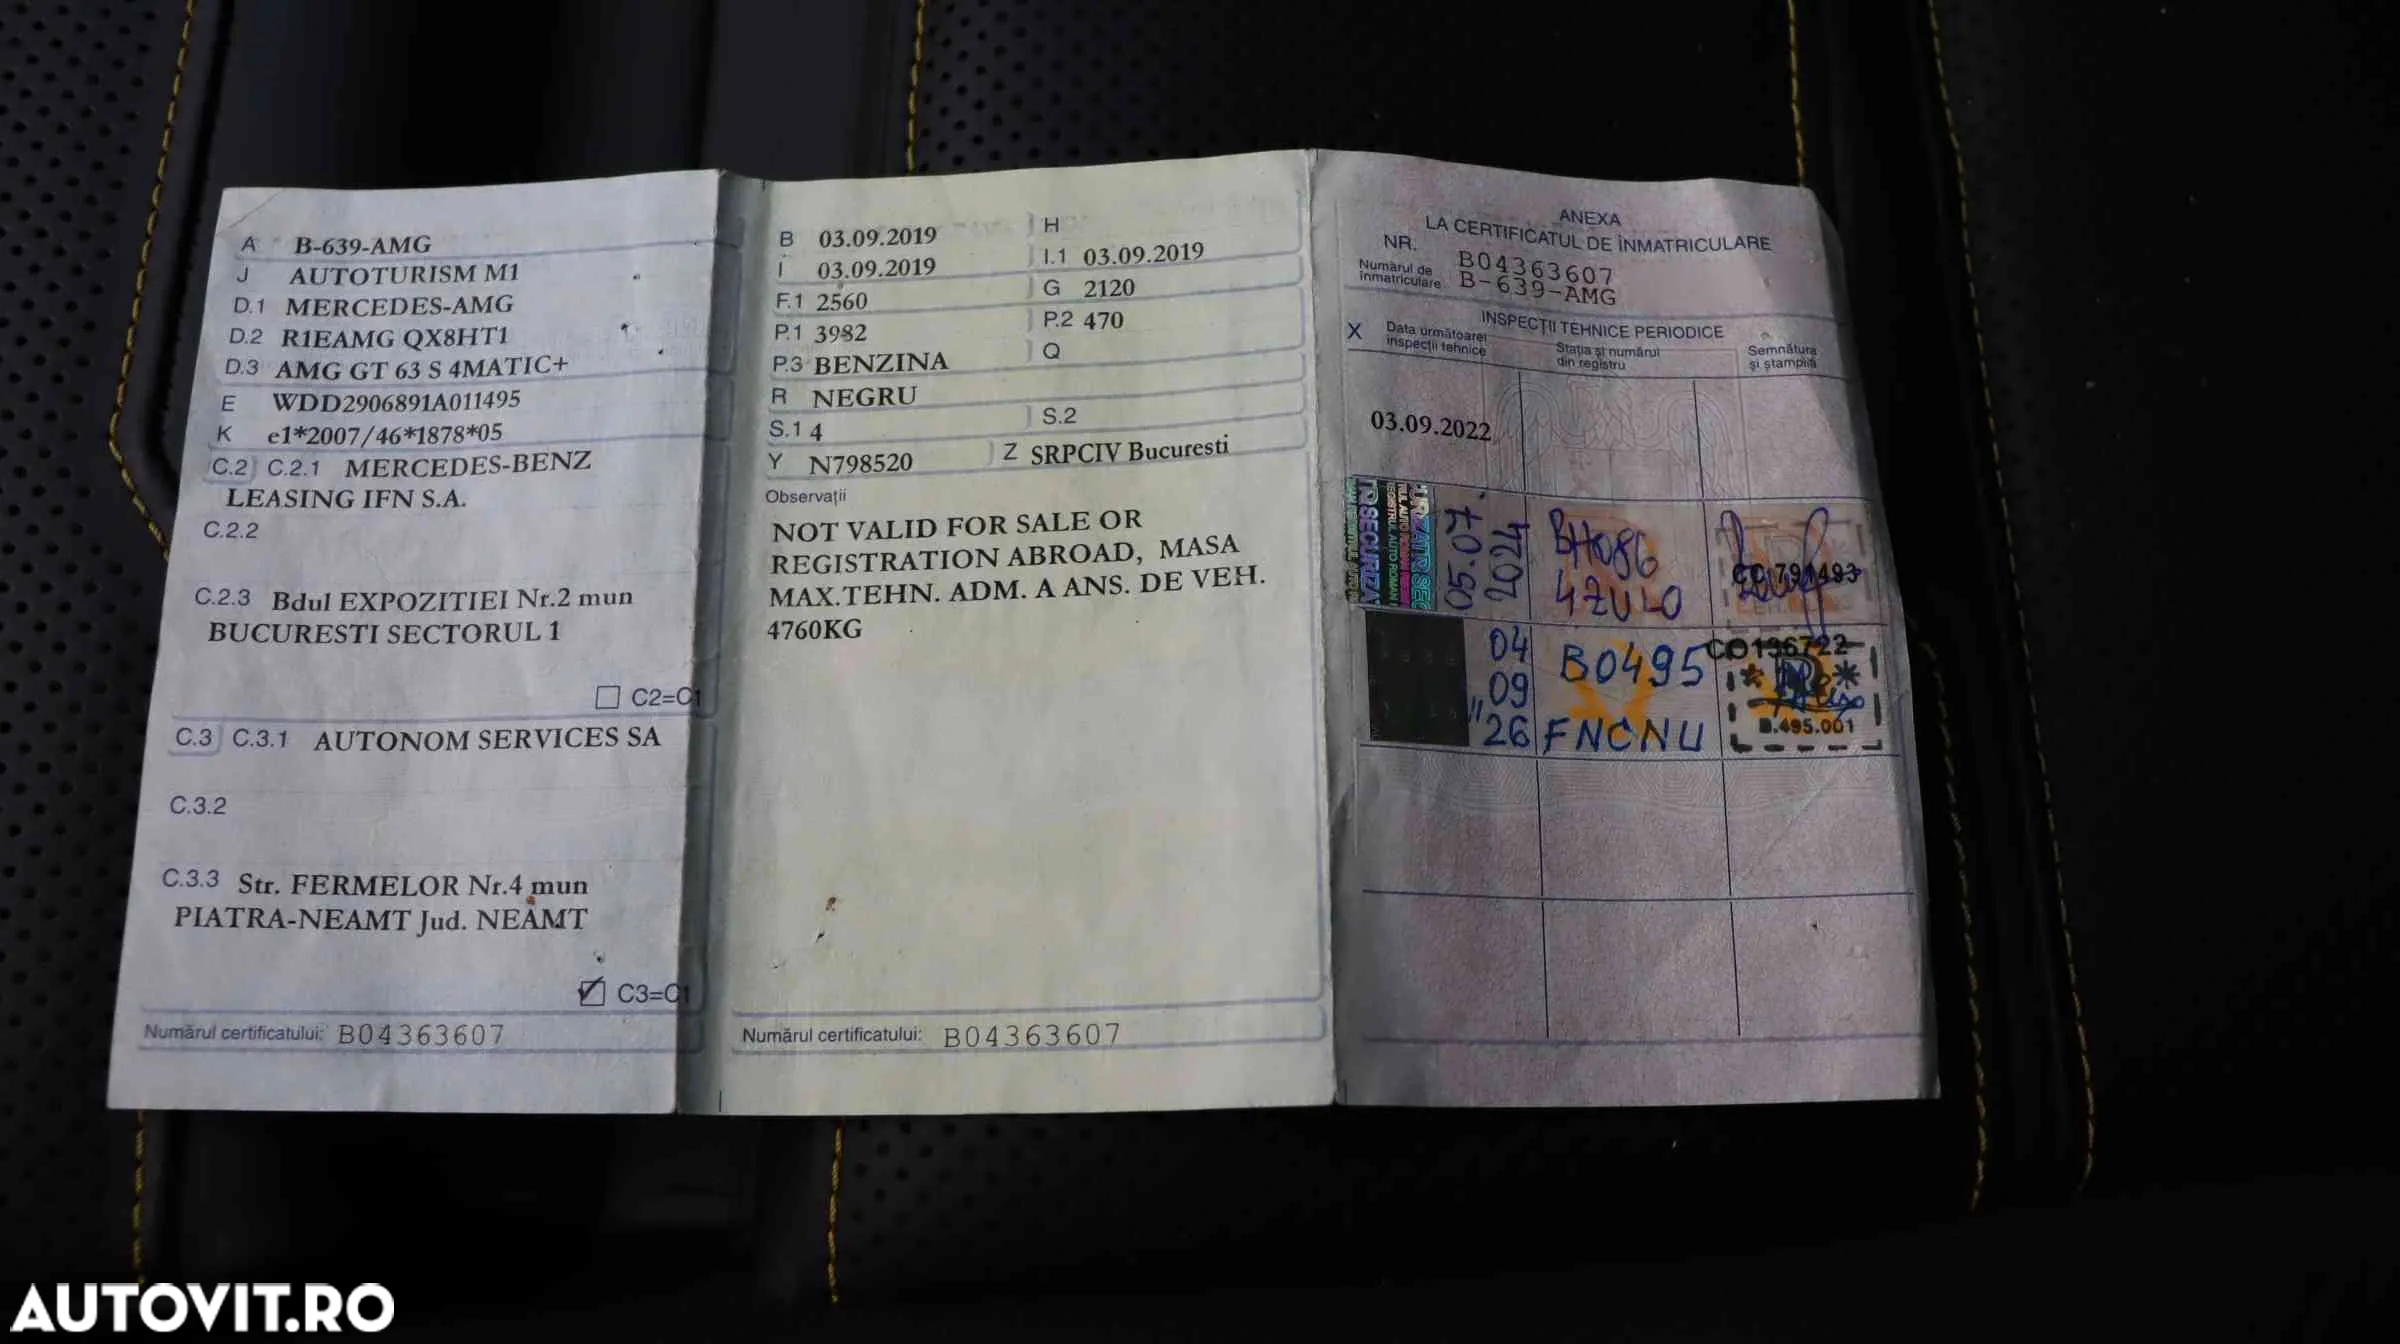 A B-639-AMG
J AUTOTURISM M1
D.1 MERCEDES-AMG
D.2 R1EAMG QX8HT1
D.3 AMG GT 63 S 4MATIC+
E WDD2906891A011495
K e1*2007/46*1878*05
C.2 C.2.1 MERCEDES-BENZ
LEASING IFN S.A.
C.2.2
C.2.3 Bdul EXPOZITIEI Nr.2 mun
BUCURESTI SECTORUL 1
C2=C1
C.3 C.3.1 AUTONOM SERVICES SA
C.3.2
C.3.3 Str. FERMELOR Nr.4 mun
PIATRA-NEAMT Jud. NEAMT
C3=C1
Numărul certificatului: B04363607
B 03.09.2019 H
I 03.09.2019 I.1 03.09.2019
F.1 2560 G 2120
P.1 3982 P.2 470
P.3 BENZINA Q
R NEGRU
S.1 4 S.2
Y N798520 Z SRPCIV Bucuresti
Observații
NOT VALID FOR SALE OR
REGISTRATION ABROAD, MASA
MAX.TEHN. ADM. A ANS. DE VEH.
4760KG
Numărul certificatului: B04363607
ANEXA
LA CERTIFICATUL DE ÎNMATRICULARE
NR. B04363607
Numărul de înmatriculare B-639-AMG
INSPECȚII TEHNICE PERIODICE
X Data următoarei inspecții tehnice
Stația și numărul din registru
Semnătura și ștampila
03.09.2022
05.07
2024
BH086
4ZULO
CC 791493
04
09
26
B0495
FNCNU
CO196722
B.495.001
AUTOVIT.RO